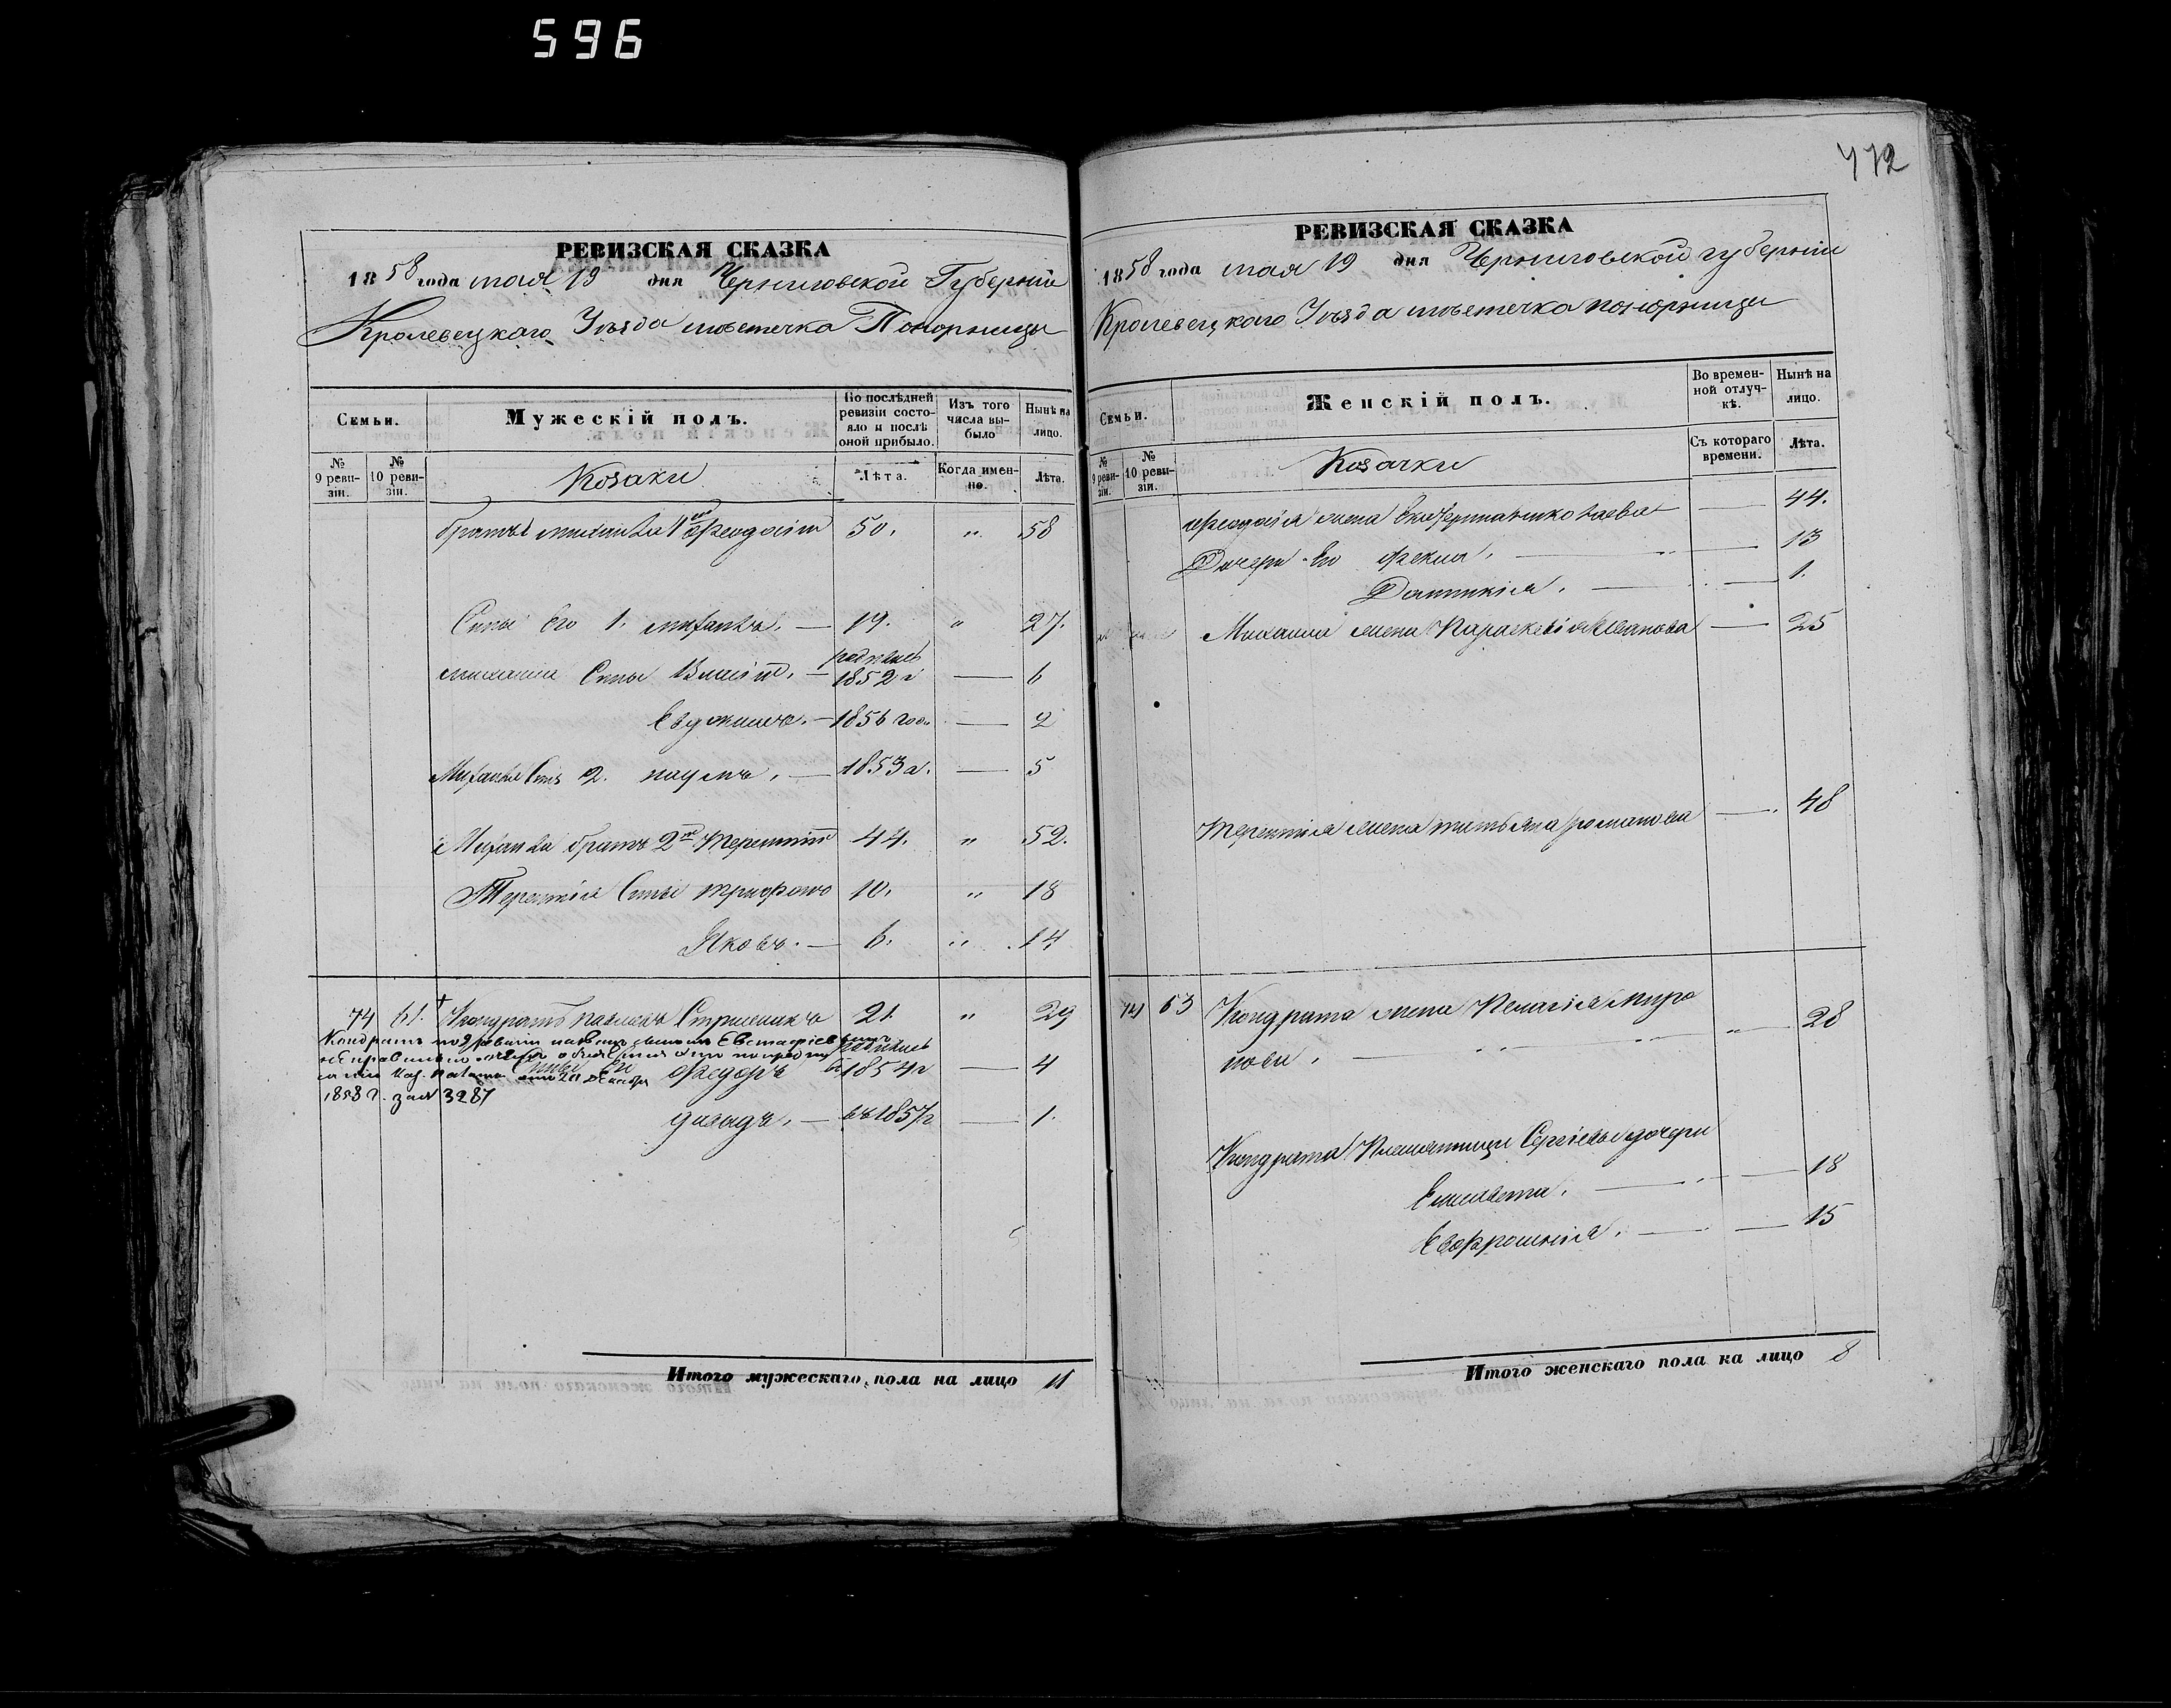 596
472
РЕВИЗСКАЯ СКАЗКА
1858 года мая 19 дня Черниговской Губерніи
Кролевецкаго Уѣзда мѣстечка Понорницы
Семьи.
Мужескій полъ.
По послѣдней ревизіи состояло и послѣ оной прибыло.
Изъ того числа выбыло
Нынѣ на лицо.
№ 9 ревизіи.
№ 10 ревизіи.
Козаки
Лѣта.
Когда именно.
Лѣта.
братъ 1й Феодосій 50. " 58
Сыны Его 1. 19. " 27.
Сыны Власій. — родился 1852 г — 6
Евдокимъ. — 1856 год. — 2
Сынъ 2. Наумъ. — 1853 г. — 5
братъ 2й Терентій 44. " 52.
Терентія Сыны Трифонъ 10. " 18
Яковъ. — 6. " 14
74 61. Кондратъ Павловъ 21. " 29
Кондратъ по 9 ревизіи названъ Евстафіевымъ
Сыны Его Федоръ родился въ 1854 г — 4
1858 г. за № 3287
въ 1857 г — 1.
Итого мужескаго пола на лицо 11
РЕВИЗСКАЯ СКАЗКА
1858 года мая 19 дня Черниговской губерніи
Кролевецкаго Уѣзда мѣстечка Понорницы
Семьи.
Женскій полъ.
Во временной отлучкѣ.
Нынѣ на лицо.
№ 9 ревизіи.
№ 10 ревизіи.
Козачки
Съ котораго времени.
Лѣта.
Феодосія жена Екатерина Николаева — 44.
Дочери Его Фекла. — 13
Домникія. — 1.
Михаила жена Параскевія Иванова — 25
Терентія жена Татьяна Романова — 48
74 63 Кондрата жена Пелагія Миро
нова. — " 28
Кондрата Племянницы Сергіевы дочери
Елисавета. — 18
Евфросинія. — 15
Итого женскаго пола на лицо 8